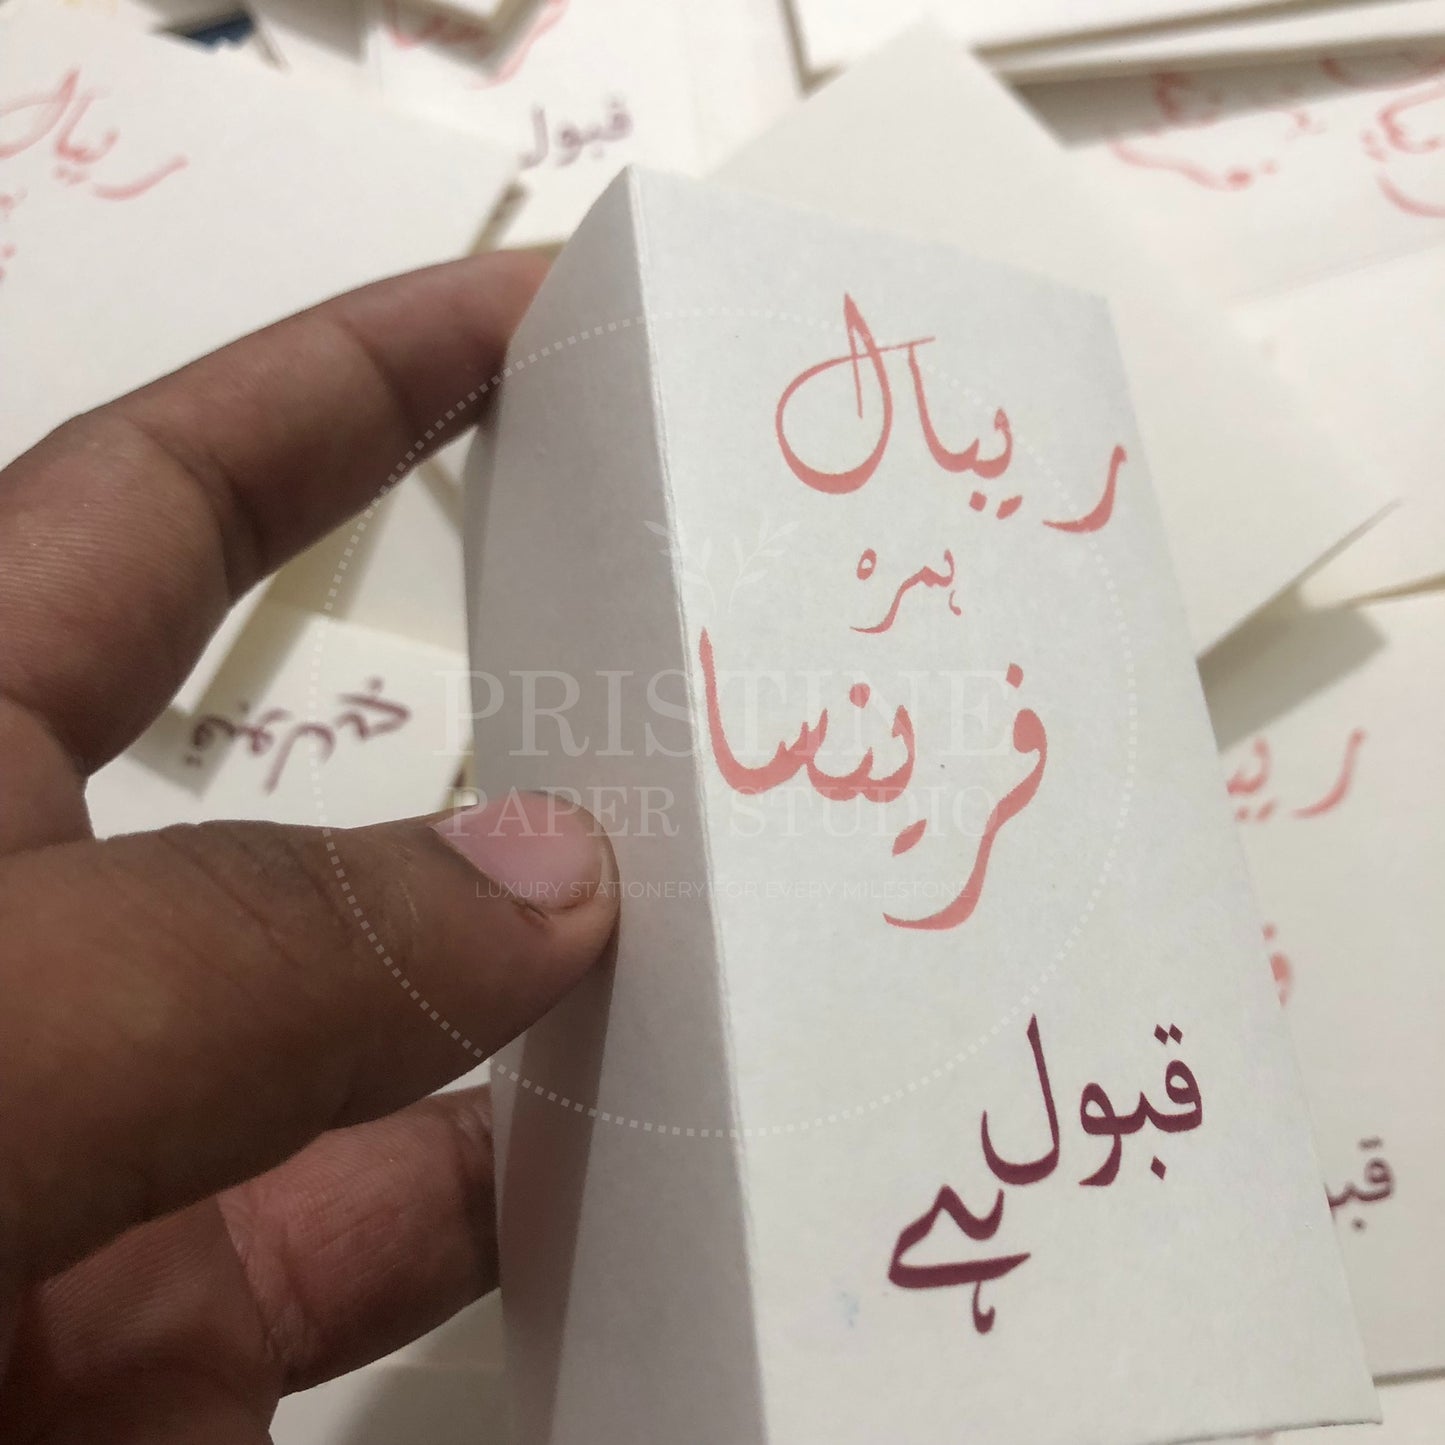 ریبال
ہمرہ
فرینسا
قبول
ہے
PRISTINE
PAPER STUDIO
LUXURY STATIONERY FOR EVERY MILESTONE
قبول
ریبال